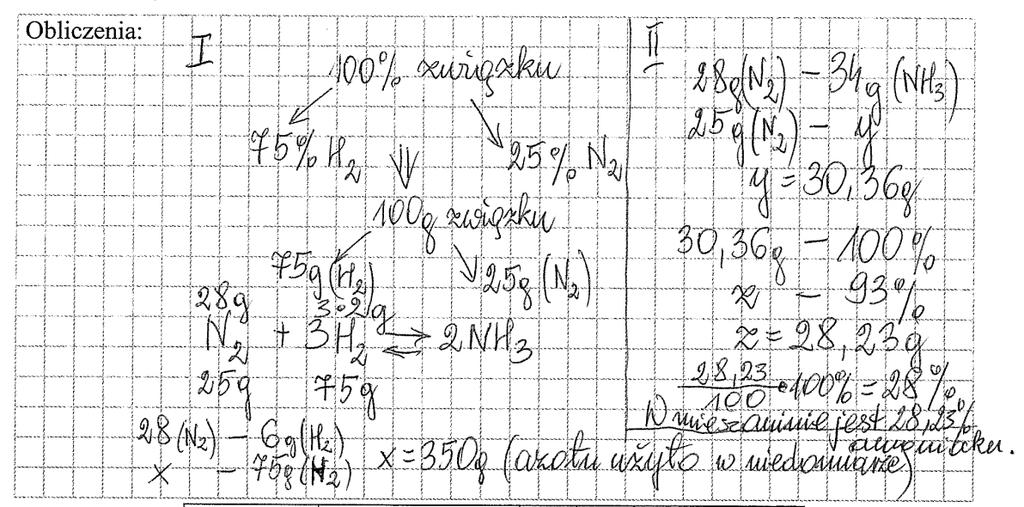 Obliczenia:
I
100% związku
75% H₂
25% N₂
100g związku
75g (H₂)
25g (N₂)
28g
3·2g
N₂ + 3H₂ ⇄ 2NH₃
25g 75g
28 (N₂) – 6g (H₂)
x – 75g (H₂)
x = 350g (azotu użyto w niedomiarze)
II
28g (N₂) – 34g (NH₃)
25g (N₂) – y
y = 30,36g
30,36g – 100%
z – 93%
z = 28,23g
28,23/100 · 100% = 28%
W mieszaninie jest 28,23%
amoniaku.